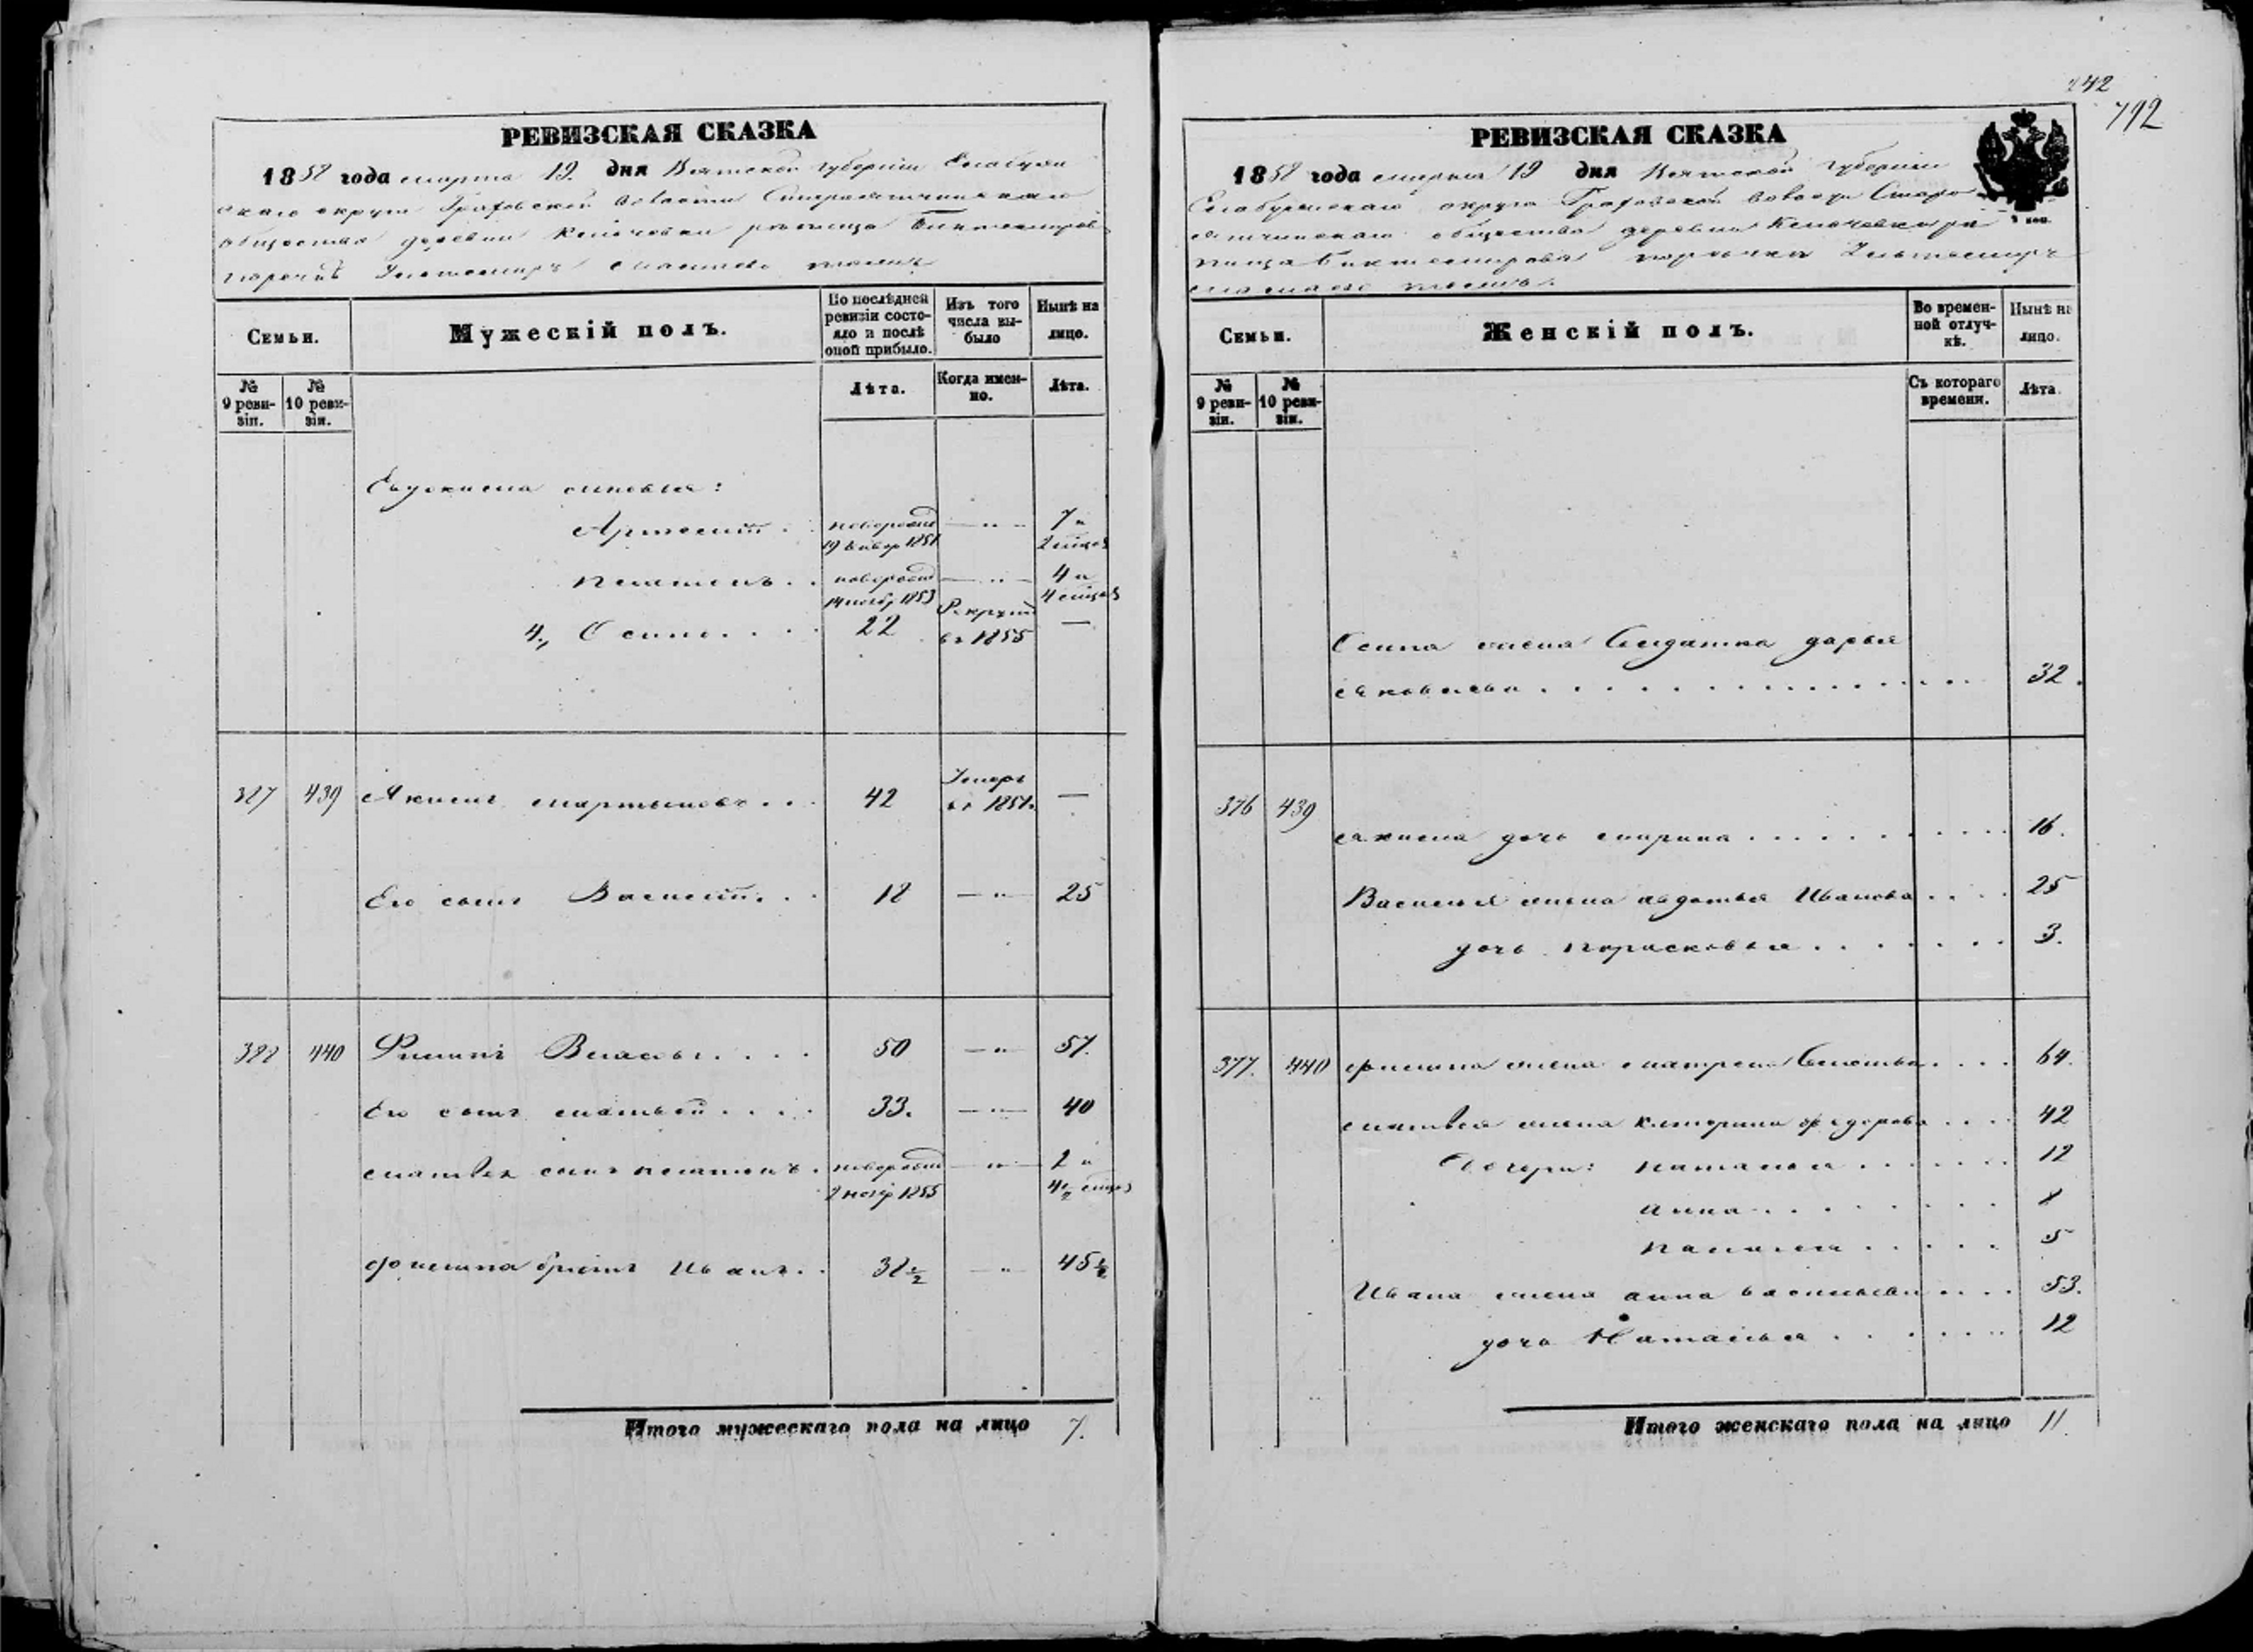 РЕВИЗСКАЯ СКАЗКА
1858 года марта 19 дня Вятской губернiи Елабуж
скаго округа Граховской волости
общества деревни Ключевки
По послѣдней ревизiи состояло и послѣ оной прибыло.
Изъ того числа выбыло
Нынѣ на лицо.
Семьи.
Мужескiй полъ.
№ 9 ревизiи.
№ 10 ревизiи.
Лѣта.
Когда именно.
Лѣта.
сыновья:
Артемiй . новорожд — 7 и
19 генвр 1851 2 мѣсяц
Платонъ . . новорожд — 4 и
14 ноябр 1853 4 мѣсяц
4., Осипъ . . . . 22 Рекрут въ 1855 —
387 439 Акимъ Мартыновъ . . . 42 Умеръ въ 1851. —
Его сынъ Василiй . . 18 — 25
388 440 Филипъ Власовъ . . . . 50 — 57.
Его сынъ Матвей . . . . 33. — 40
Матвея сынъ Платонъ . новорожд — 2 и
2 ноябр 1855 4½ мѣсяц
Филипа братъ Иванъ . . 38½ — 45½
Итого мужескаго пола на лицо 7.
242
792
РЕВИЗСКАЯ СКАЗКА
1858 года марта 19 дня Вятской губернiи
Елабужскаго округа Граховской волости Старо
общества деревни Ключевки
Семьи.
Женскiй полъ.
Во временной отлучкѣ.
Нынѣ на лицо.
№ 9 ревизiи.
№ 10 ревизiи.
Съ котораго времени.
Лѣта.
Осипа жена Солдатка Дарья
Яковлева . . . 32.
376 439
Акима дочь Марина . . . 16.
Василья жена Авдотья Иванова . . . 25
дочь Парасковья . . . 3.
377. 440 Филипа жена Матрена . . . 64.
Матвея жена Катерина Федорова . . . 42
Дочери: Наталья . . . 12
Анна . . . 8
5
Ивана жена Анна Васильева . . . 53.
дочь Наталья . . . 12
Итого женскаго пола на лицо 11.